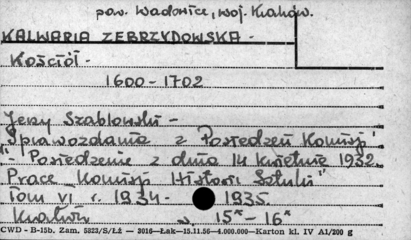 pow. Wadowice, woj. Kraków.
KALWARIA ZEBRZYDOWSKA -
Kościół -
1600 - 1702
Jerzy Szablowski -
"Sprawozdania z Posiedzeń Komisji"
- Posiedzenie z dnia 14 kwietnia 1932.
Prace Komisji Historii Sztuki"
Tom VI r. 1934 - 1935.
Kraków s. 15* - 16*
CWD - B-15b. Zam. 5323/S/Łż — 3016—Łak—15.11.56—4.000.000—Karton kl. IV A1/200 g